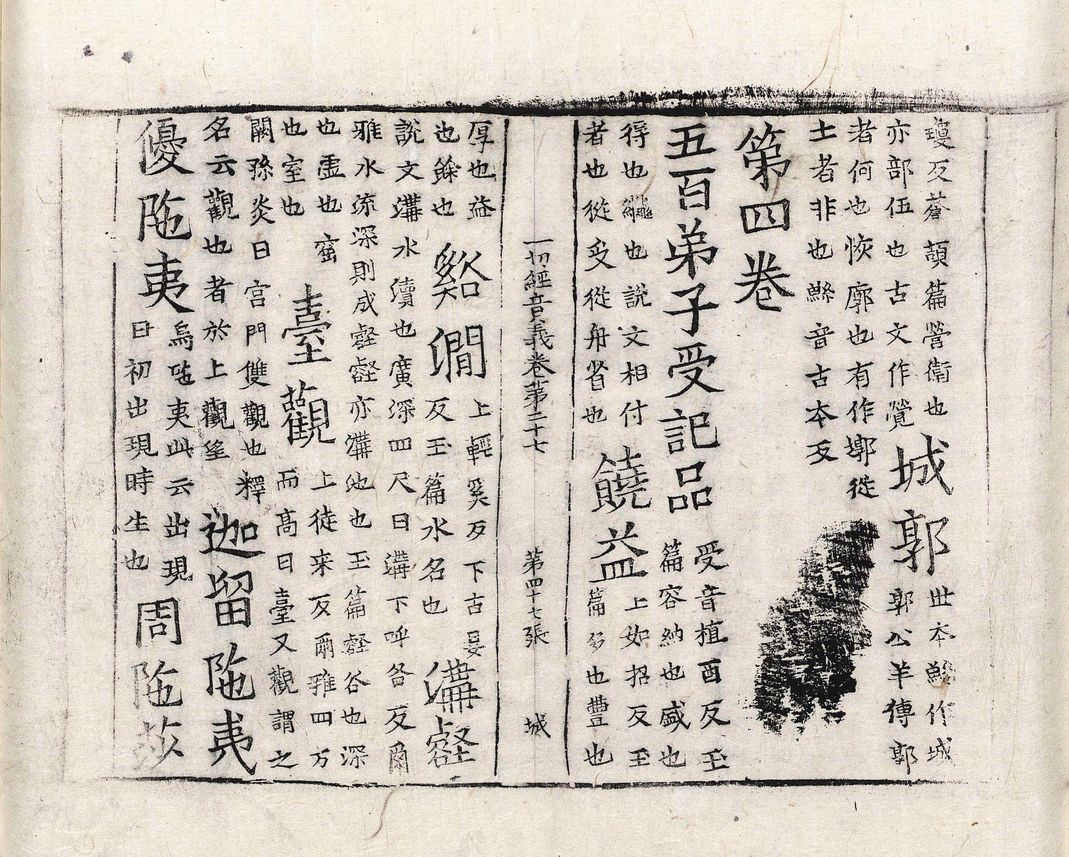 瓊反蒼頡篇營衛也
亦部伍也古文作
城郭
世本鯀作城
郭公羊傳郭
者何也恢廓也有作墎從
土者非也鯀音古本反
第四卷
五百弟子受記品
受音植酉反玉
篇容納也盛也
得也繼也說文相付
者也從受從舟省也
饒益
上如招反玉
篇多也豊也
一切經音義卷第二十七 第四十七張 城
厚也益
也餘也
谿澗
上輕奚反下古晏
反玉篇水名也
溝壑
說文溝水瀆也廣深四尺曰溝下呼各反爾
雅水流深則成壑壑亦溝池也玉篇壑谷也深
也虛也窟
也室也
臺觀
上徒来反爾雅四方
而高曰臺又觀謂之
闕孫炎曰宮門雙觀也釋
名云觀也者於上觀望
迦留陁夷
優陁夷
烏陁夷此云出現
日初出現時生也
周陁莎